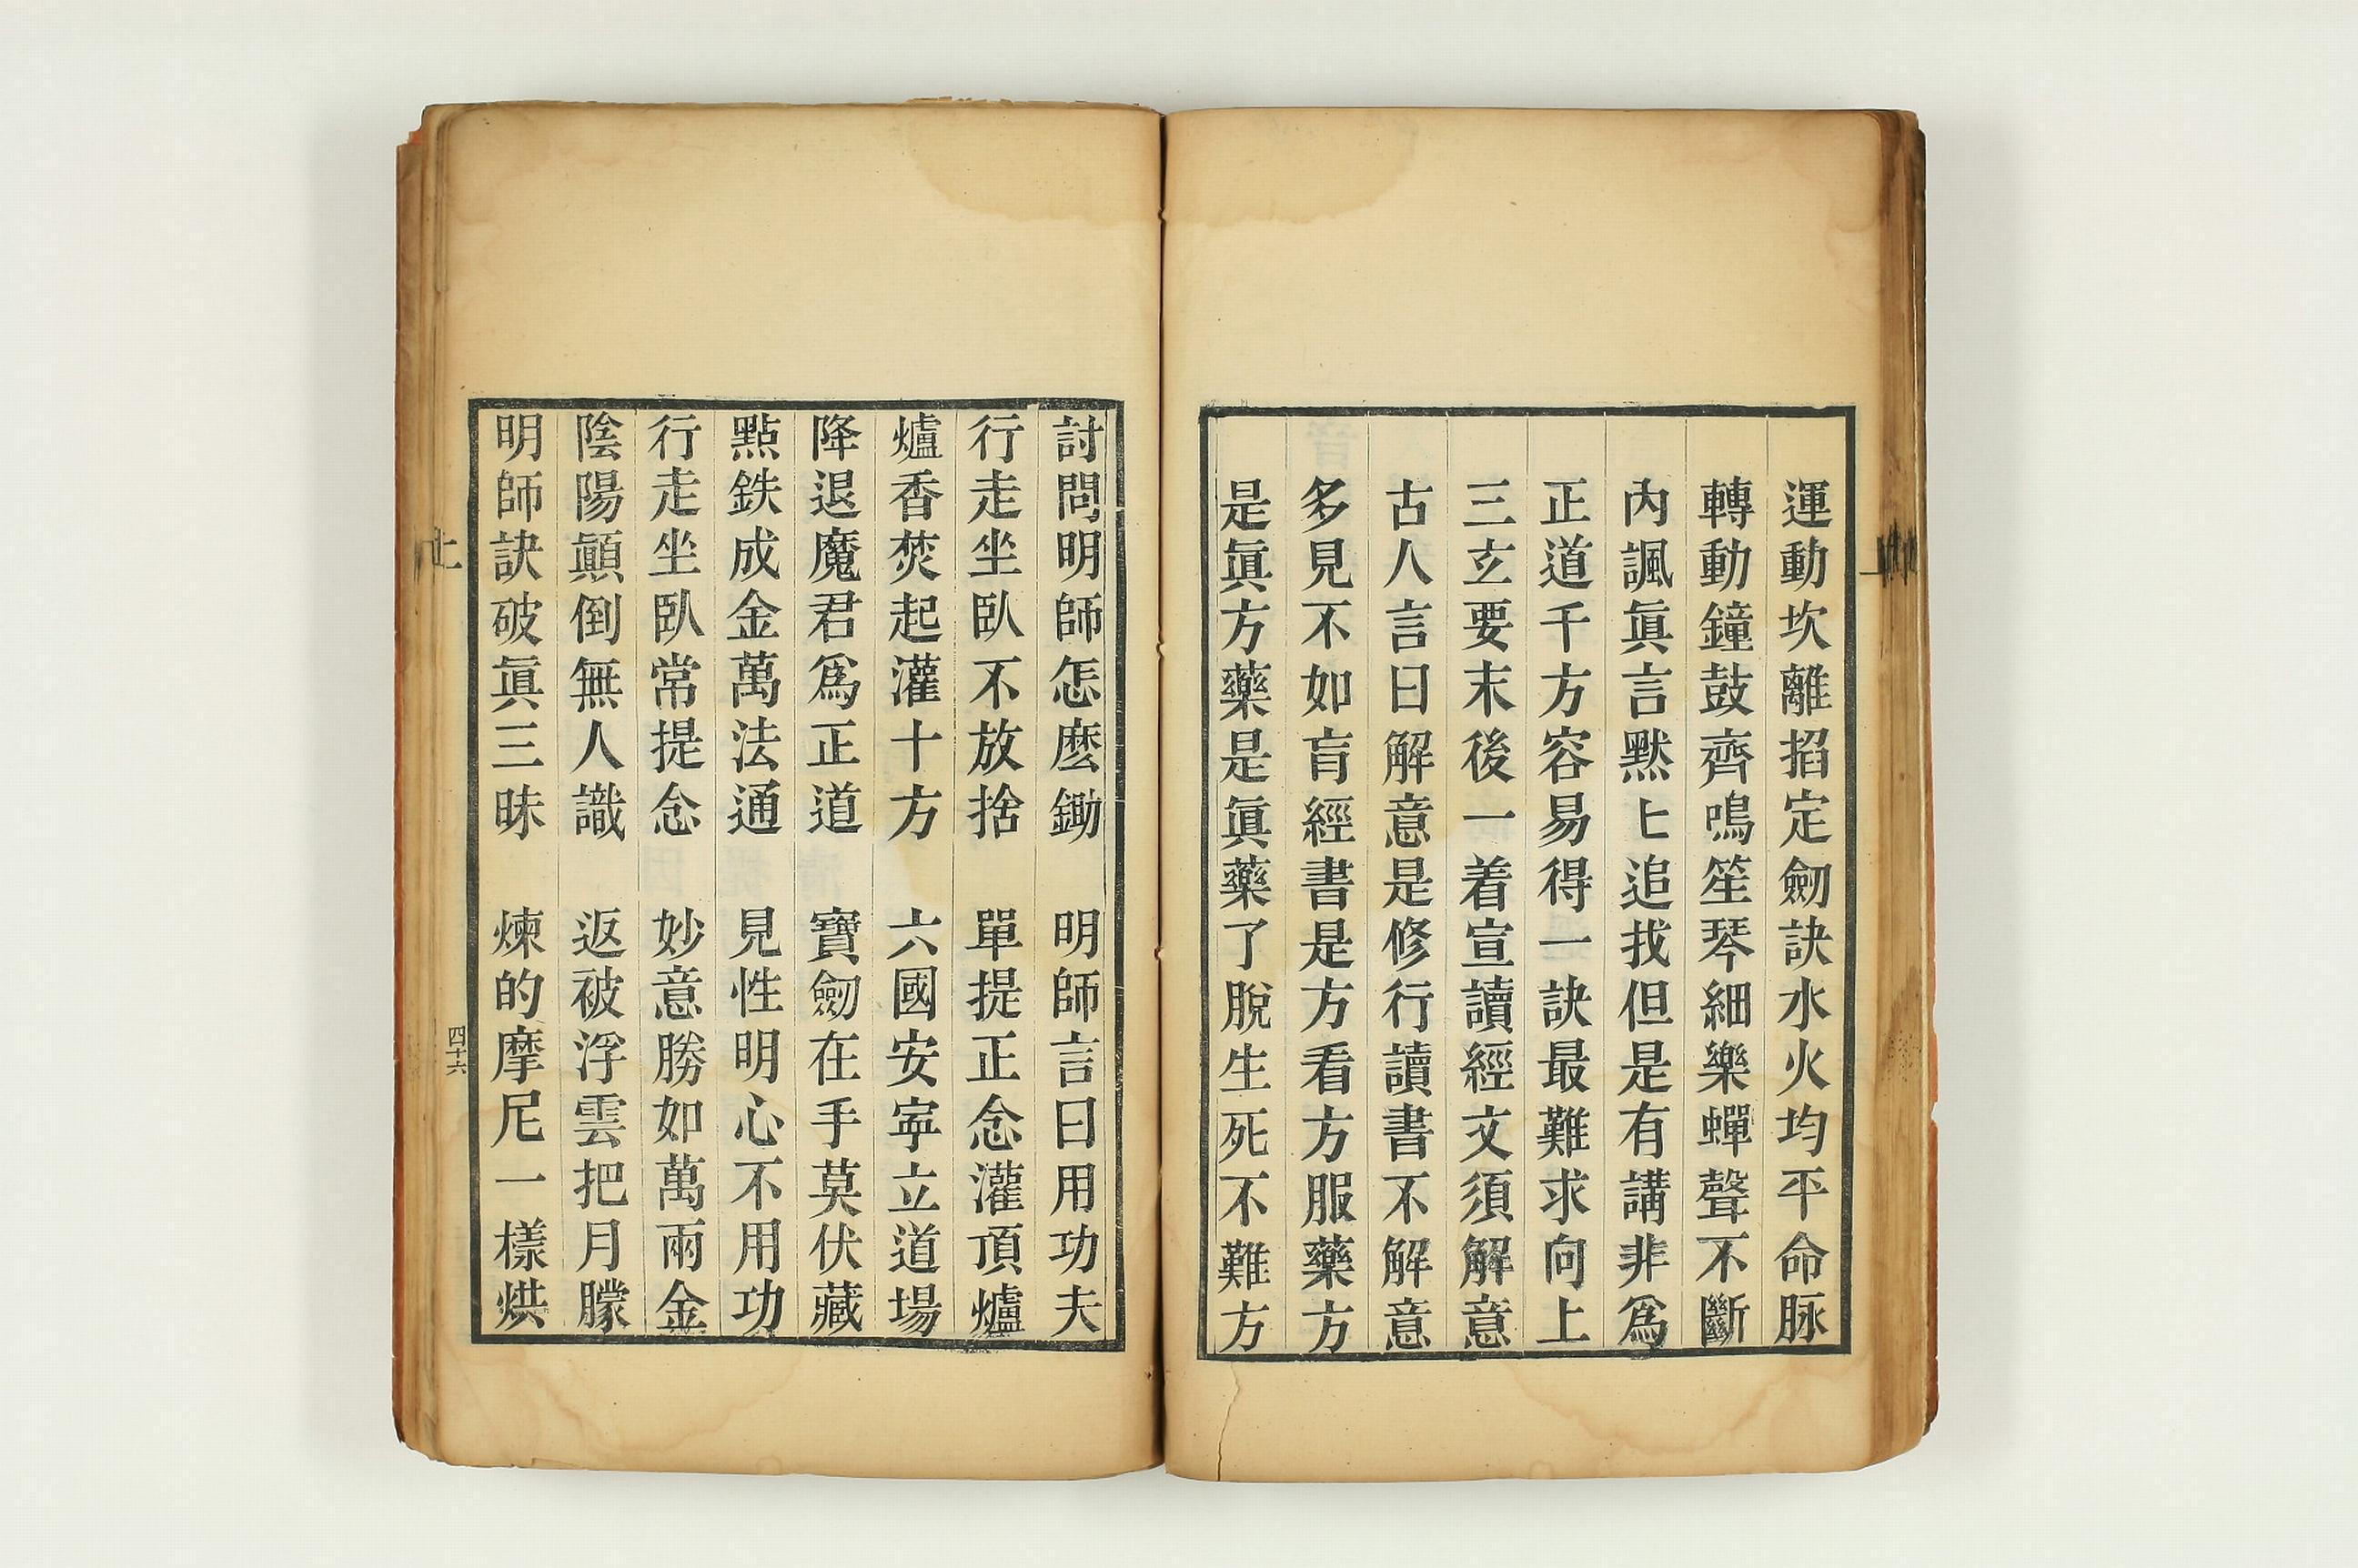 運動坎離掐定劒訣水火均平命脉
轉動鐘鼓齊鳴笙琴細樂蟬聲不斷
内諷眞言默〻追找但是有講非爲
正道千方容易得一訣最難求向上
三玄要末後一着宣讀經文須解意
古人言曰解意是修行讀書不解意
多見不如盲經書是方看方服藥方
是眞方藥是眞藥了脫生死不難方
討問明師怎麽鋤　明師言曰用功夫
行走坐臥不放捨　單提正念灌頂爐
爐香焚起灌十方　六國安寍立道場
降退魔君爲正道　寶劒在手莫伏藏
點鉄成金萬法通　見性明心不用功
行走坐臥常提念　妙意勝如萬兩金
陰陽顚倒無人識　返被浮雲把月朦
明師訣破眞三昧　煉的摩尼一樣烘
上
四十六